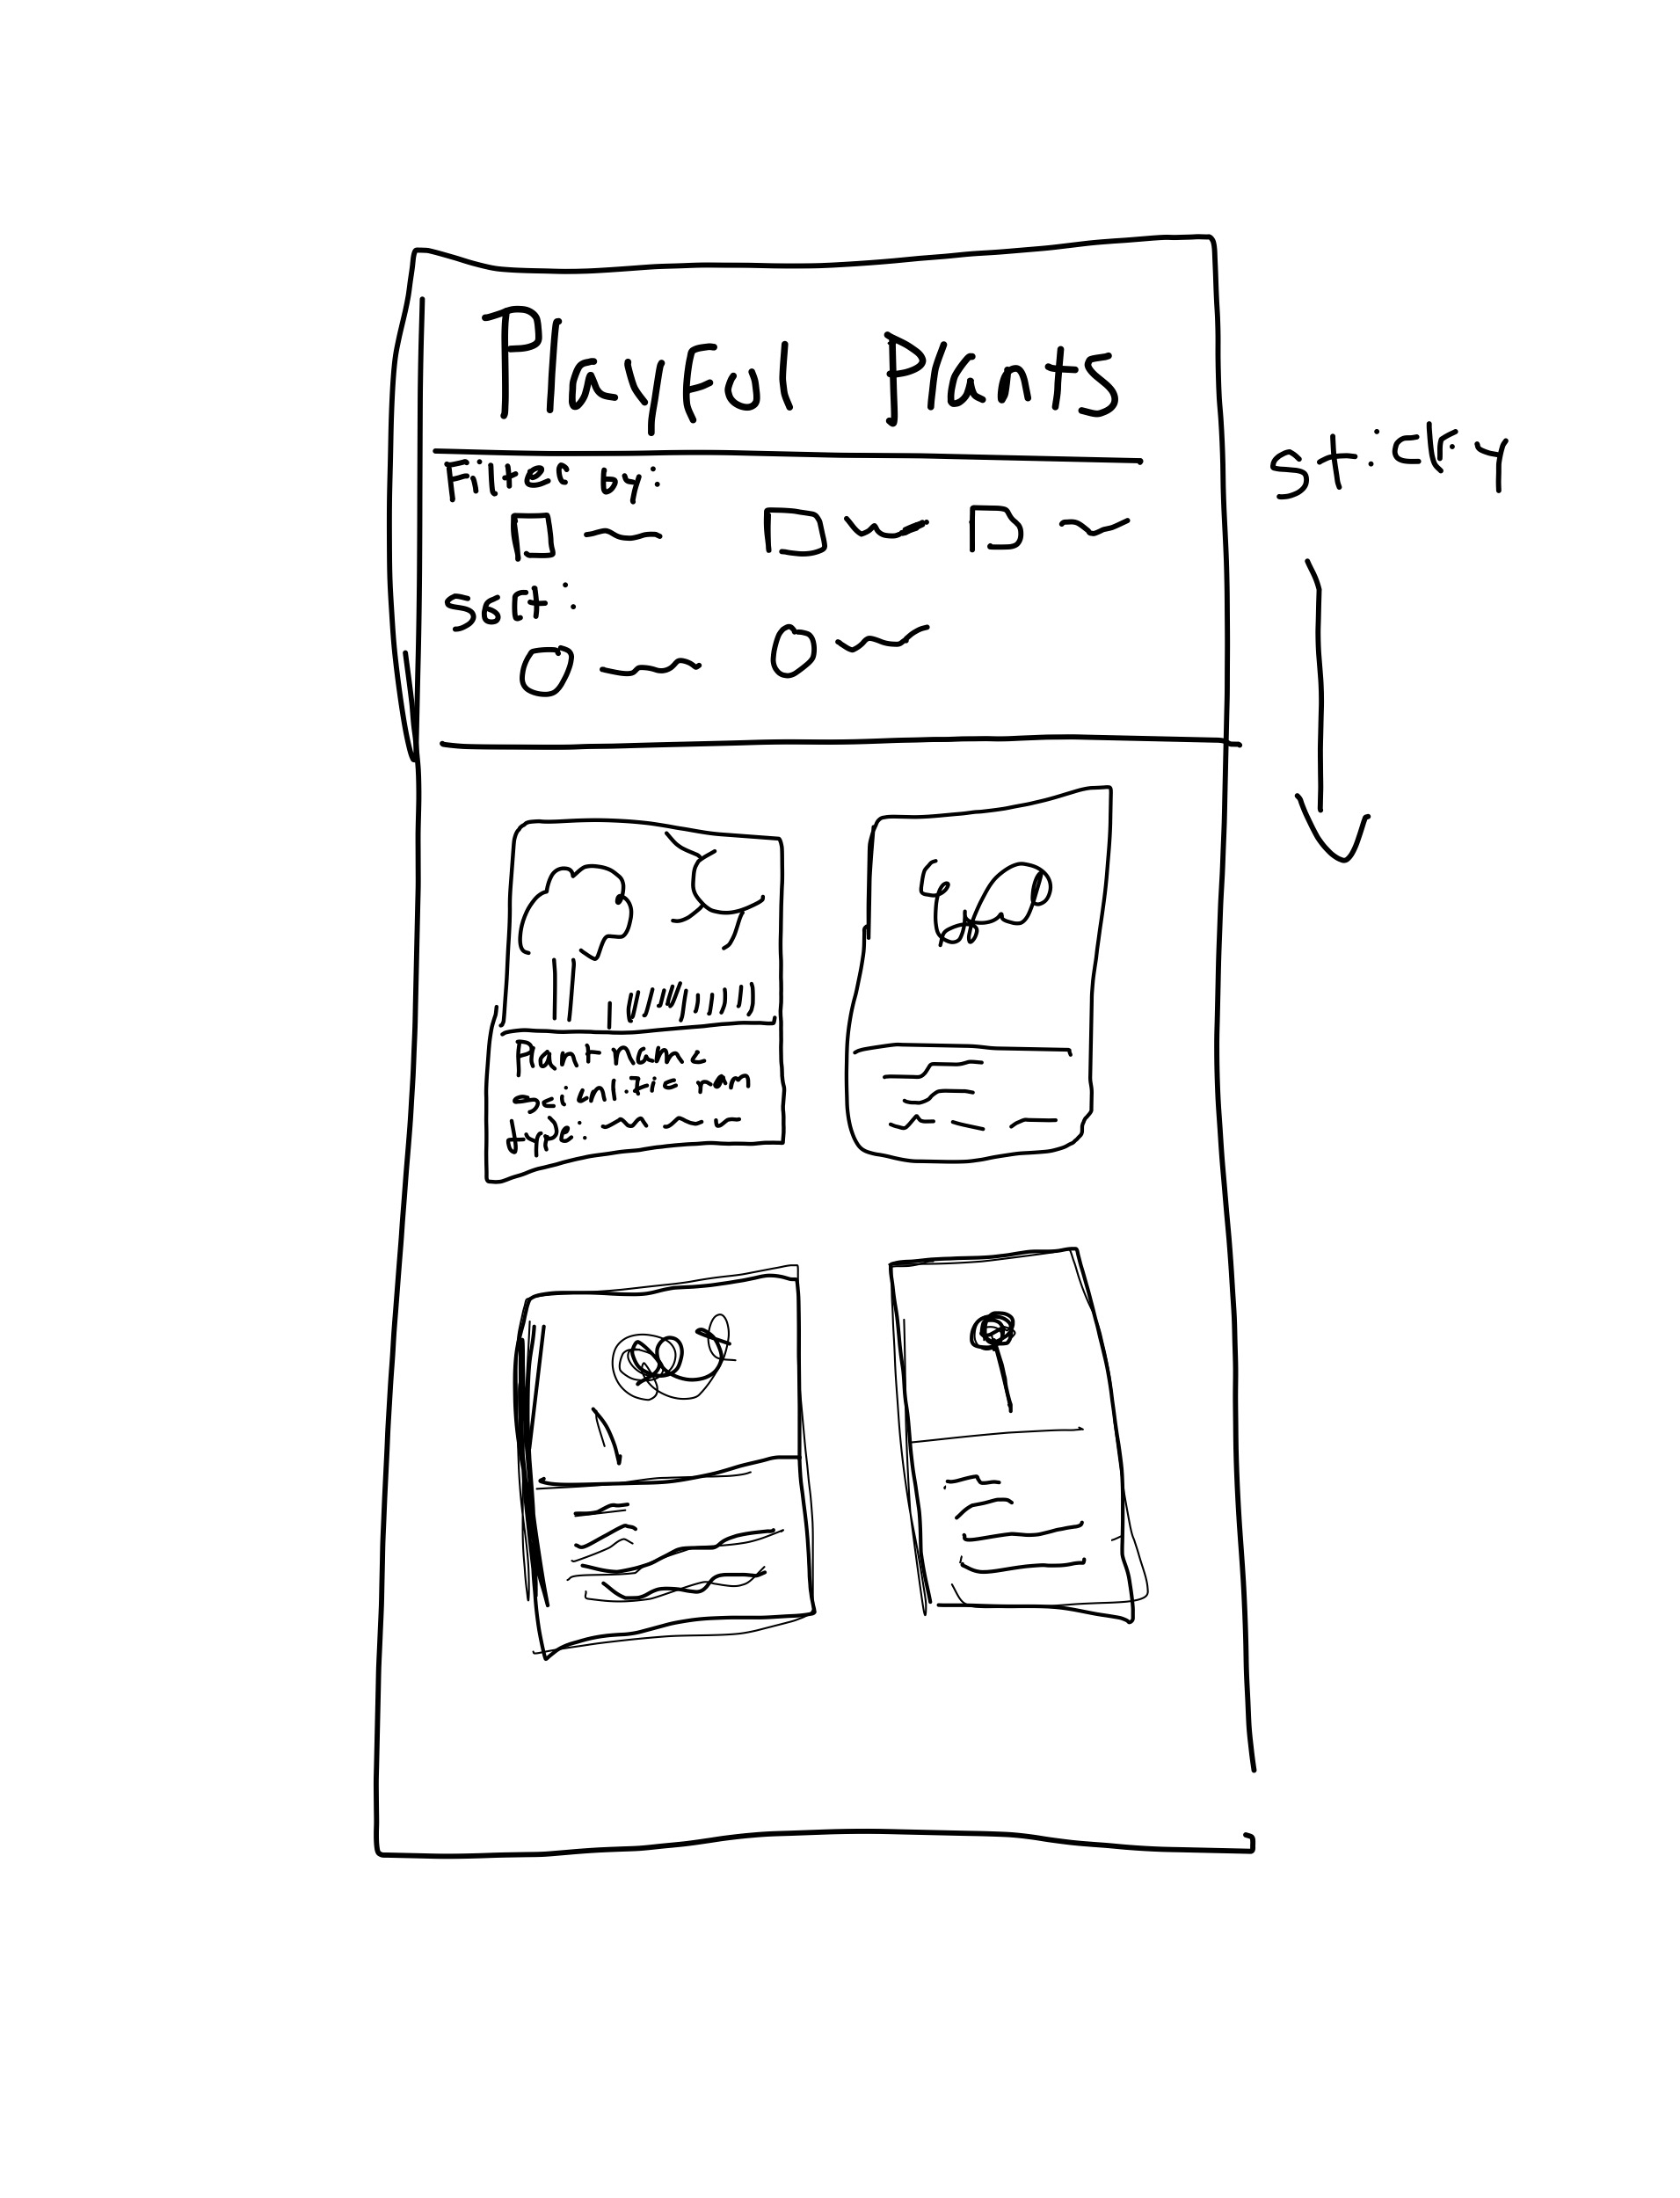 Playful Plants
Filter by:
Sort:
sticky
Plant name
scientific nam
type: